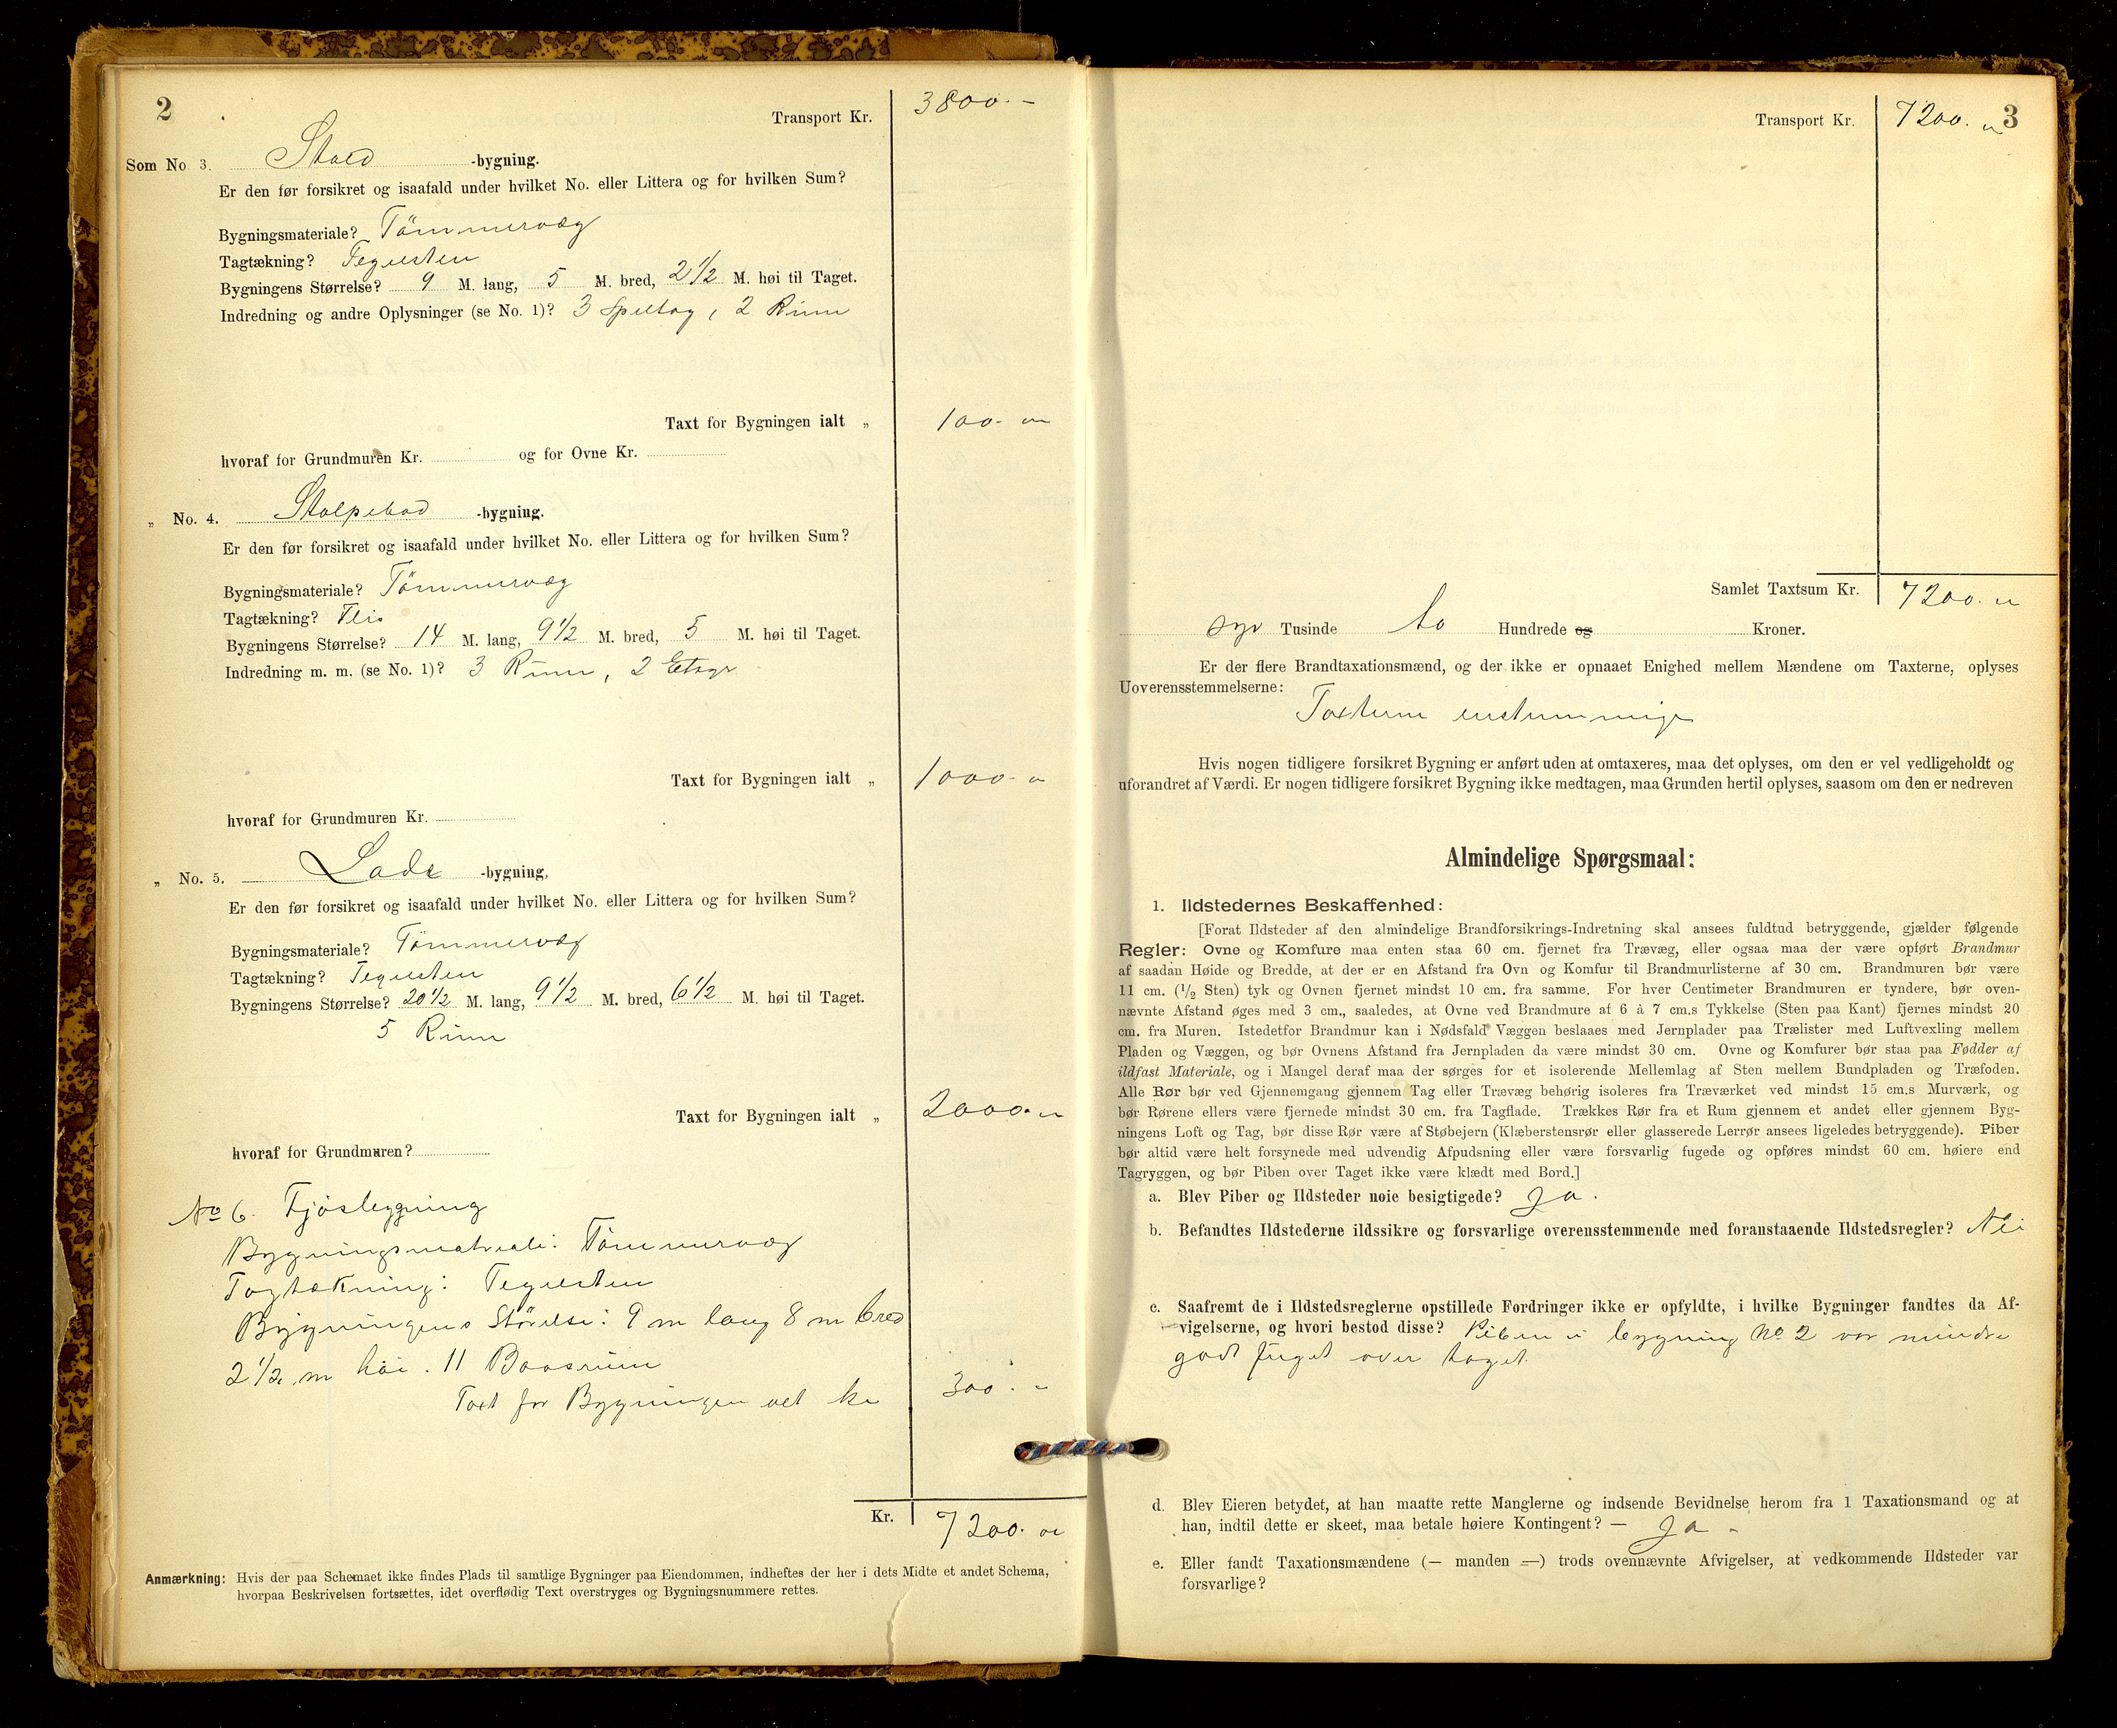 2
Transport Kr. 3800.-
Som No. 3. Stald -bygning.
Er den før forsikret og isaafald under hvilket No. eller Littera og for hvilken Sum?
Bygningsmateriale? Tömmervæg
Tagtækning? Teglsten
Bygningens Størrelse? 9 M. lang, 5 M. bred, 2 1/2 M. høi til Taget.
Indredning og andre Oplysninger (se No. 1)? 3 Spiltog, 2 Rum
Taxt for Bygningen ialt „ 100.-
hvoraf for Grundmuren Kr. og for Ovne Kr.
„ No. 4. Stolpebod -bygning.
Er den før forsikret og isaafald under hvilket No. eller Littera og for hvilken Sum?
Bygningsmateriale? Tömmervæg
Tagtækning? Flis
Bygningens Størrelse? 14 M. lang, 9 1/2 M. bred, 5 M. høi til Taget.
Indredning m. m. (se No. 1)? 3 Rum, 2 Etage
Taxt for Bygningen ialt „ 1000.-
hvoraf for Grundmuren Kr.
„ No. 5. Lade -bygning,
Er den før forsikret og isaafald under hvilket No. eller Littera og for hvilken Sum?
Bygningsmateriale? Tömmervæg
Tagtækning? Teglsten
Bygningens Størrelse? 20 1/2 M. lang, 9 1/2 M. bred, 6 1/2 M. høi til Taget.
5 Rum
Taxt for Bygningen ialt „ 2000.-
hvoraf for Grundmuren?
No 6. Fjösbygning
Bygningsmateriale: Tömmervæg
Tagtækning: Teglsten
Bygningens Störelse: 9 m lang 8 m bred
2 1/2 m höi. 11 Baasrum
Taxt for Bygningen alt kr 300.-
Kr. 7200.-
Anmærkning: Hvis der paa Schemaet ikke findes Plads til samtlige Bygninger paa Eiendommen, indheftes der her i dets Midte et andet Schema,
hvorpaa Beskrivelsen fortsættes, idet overflødig Text overstryges og Bygningsnummere rettes.
3
Transport Kr. 7200.-
Samlet Taxtsum Kr. 7200.-
syv Tusinde to Hundrede og Kroner.
Er der flere Brandtaxationsmænd, og der ikke er opnaaet Enighed mellem Mændene om Taxterne, oplyses
Uoverensstemmelserne:
Taxterne enstemmige
Hvis nogen tidligere forsikret Bygning er anført uden at omtaxeres, maa det oplyses, om den er vel vedligeholdt og
uforandret af Værdi. Er nogen tidligere forsikret Bygning ikke medtagen, maa Grunden hertil oplyses, saasom om den er nedreven
Almindelige Spørgsmaal:
1. Ildstedernes Beskaffenhed:
[Forat Ildsteder af den almindelige Brandforsikrings-Indretning skal ansees fuldtud betryggende, gjælder følgende
Regler: Ovne og Komfure maa enten staa 60 cm. fjernet fra Trævæg, eller ogsaa maa der være opført Brandmur
af saadan Høide og Bredde, at der er en Afstand fra Ovn og Komfur til Brandmurlisterne af 30 cm. Brandmuren bør være
11 cm. (1/2 Sten) tyk og Ovnen fjernet mindst 10 cm. fra samme. For hver Centimeter Brandmuren er tyndere, bør oven-
nævnte Afstand øges med 3 cm., saaledes, at Ovne ved Brandmure af 6 à 7 cm.s Tykkelse (Sten paa Kant) fjernes mindst 20
cm. fra Muren. Istedetfor Brandmur kan i Nødsfald Væggen beslaaes med Jernplader paa Trælister med Luftvexling mellem
Pladen og Væggen, og bør Ovnens Afstand fra Jernpladen da være mindst 30 cm. Ovne og Komfurer bør staa paa Fødder af
ildfast Materiale, og i Mangel deraf maa der sørges for et isolerende Mellemlag af Sten mellem Bundpladen og Træfoden.
Alle Rør bør ved Gjennemgang gjennem Tag eller Trævæg behørig isoleres fra Træværket ved mindst 15 cm.s Murværk, og
bør Rørene ellers være fjernede mindst 30 cm. fra Tagflade. Trækkes Rør fra et Rum gjennem et andet eller gjennem Byg-
ningens Loft og Tag, bør disse Rør være af Støbejern (Klæberstensrør eller glasserede Lerrør ansees ligeledes betryggende). Piber
bør altid være helt forsynede med udvendig Afpudsning eller være forsvarlig fugede og opføres mindst 60 cm. høiere end
Tagryggen, og bør Piben over Taget ikke være klædt med Bord.]
a. Blev Piber og Ildsteder nøie besigtigede? Ja.
b. Befandtes Ildstederne ildssikre og forsvarlige overensstemmende med foranstaaende Ildstedsregler? Nei
c. Saafremt de i Ildstedsreglerne opstillede Fordringer ikke er opfyldte, i hvilke Bygninger fandtes da Af-
vigelserne, og hvori bestod disse? Piben i bygning No 2 var mindre
godt fuget over taget.
d. Blev Eieren betydet, at han maatte rette Manglerne og indsende Bevidnelse herom fra 1 Taxationsmand og at
han, indtil dette er skeet, maa betale høiere Kontingent? — Ja -
e. Eller fandt Taxationsmændene (— manden —) trods ovennævnte Afvigelser, at vedkommende Ildsteder var
forsvarlige?